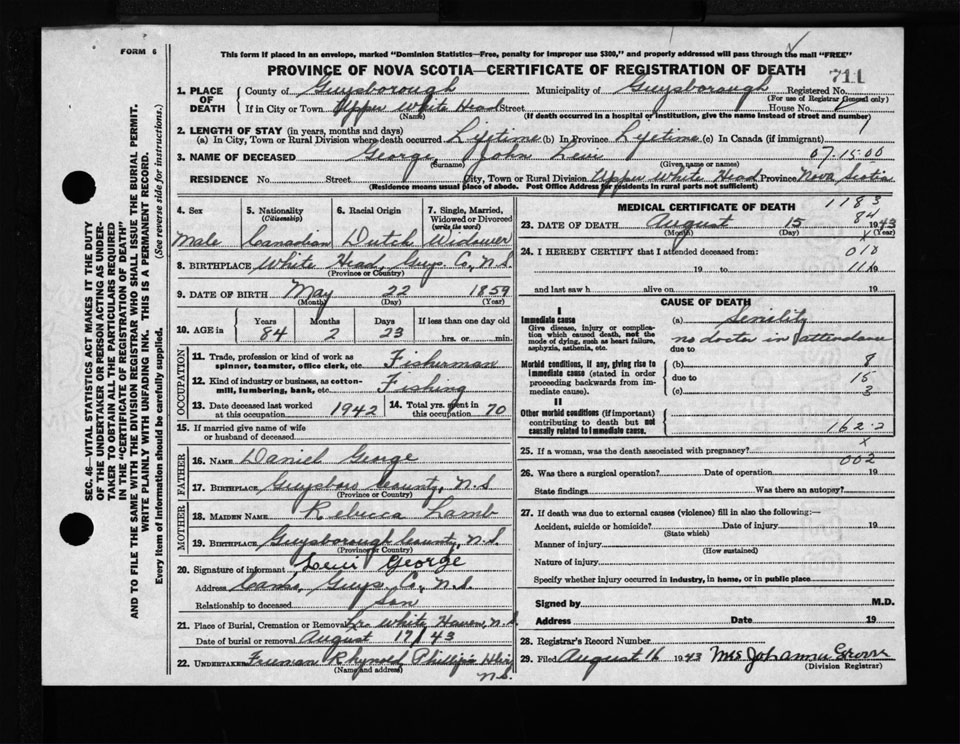 FORM 6
This form if placed in an envelope, marked "Dominion Statistics—Free, penalty for improper use $300," and properly addressed will pass through the mail "FREE"
PROVINCE OF NOVA SCOTIA—CERTIFICATE OF REGISTRATION OF DEATH
711
1. PLACE OF DEATH
County of Guysborough Municipality of Guysborough Registered No.
(For use of Registrar General only)
If in City or Town Upper White Head Street House No.
(Name) (If death occurred in a hospital or institution, give the name instead of street and number)
2. LENGTH OF STAY (in years, months and days)
(a) In City, Town or Rural Division where death occurred Lifetime (b) In Province Lifetime (c) In Canada (if immigrant)
3. NAME OF DECEASED George, John Levi 07-15-00
(Surname) (Given name or names)
RESIDENCE No. Street City, Town or Rural Division Upper White Head Province Nova Scotia
(Residence means usual place of abode. Post Office Address for residents in rural parts not sufficient)
SEC. 46—VITAL STATISTICS ACT MAKES IT THE DUTY
OF THE UNDERTAKER OR PERSON ACTING AS UNDER-
TAKER TO OBTAIN ALL THE PARTICULARS REQUIRED
IN THE "CERTIFICATE OF REGISTRATION OF DEATH"
AND TO FILE THE SAME WITH THE DIVISION REGISTRAR WHO SHALL ISSUE THE BURIAL PERMIT.
WRITE PLAINLY WITH UNFADING INK. THIS IS A PERMANENT RECORD.
Every item of information should be carefully supplied. (See reverse side for instructions.)
4. Sex 5. Nationality (Citizenship) 6. Racial Origin 7. Single, Married, Widowed or Divorced (write the word)
Male Canadian Dutch Widower
8. BIRTHPLACE White Head, Guys. Co., N.S.
(Province or Country)
9. DATE OF BIRTH May 22 1859
(Month) (Day) (Year)
10. AGE in Years Months Days If less than one day old
84 2 23 hrs. or min.
OCCUPATION
11. Trade, profession or kind of work as spinner, teamster, office clerk, etc. Fisherman
12. Kind of industry or business, as cotton-mill, lumbering, bank, etc. Fishing
13. Date deceased last worked at this occupation 1942 14. Total yrs. spent in this occupation 70
15. If married give name of wife or husband of deceased
FATHER
16. NAME Daniel George
17. BIRTHPLACE Guysboro County, N.S
(Province or Country)
MOTHER
18. MAIDEN NAME Rebecca Lamb
19. BIRTHPLACE Guysborough County, N.S.
(Province or Country)
20. Signature of informant Levi George
Address Canso, Guys. Co, N.S.
Relationship to deceased son
21. Place of Burial, Cremation or Removal Lr. White Haven, N.S.
Date of burial or removal August 17/43
22. UNDERTAKER Freeman Rhynold, Phillips
(Name and address) N.S.
MEDICAL CERTIFICATE OF DEATH
1183
84
23. DATE OF DEATH August 15 1943
(Month) (Day) (Year)
24. I HEREBY CERTIFY that I attended deceased from: 010
19 to 19
and last saw h alive on 19
CAUSE OF DEATH
I
Immediate cause
Give disease, injury or complication which caused death, not the mode of dying, such as heart failure, asphyxia, asthenia, etc.
(a) Senility
no doctor in attendance
due to
Morbid conditions, if any, giving rise to immediate cause (stated in order proceeding backwards from immediate cause).
(b) 8
due to 15
(c) 3
II
Other morbid conditions (if important) contributing to death but not causally related to immediate cause.
162-2
25. If a woman, was the death associated with pregnancy? x
002
26. Was there a surgical operation? Date of operation 19
State findings Was there an autopsy?
27. If death was due to external causes (violence) fill in also the following:—
Accident, suicide or homicide? Date of injury 19
(State which)
Manner of injury
(How sustained)
Nature of injury
Specify whether injury occurred in industry, in home, or in public place
Signed by M.D.
Address Date 19
28. Registrar's Record Number
29. Filed August 16 1943 Mrs Johanna
(Division Registrar)